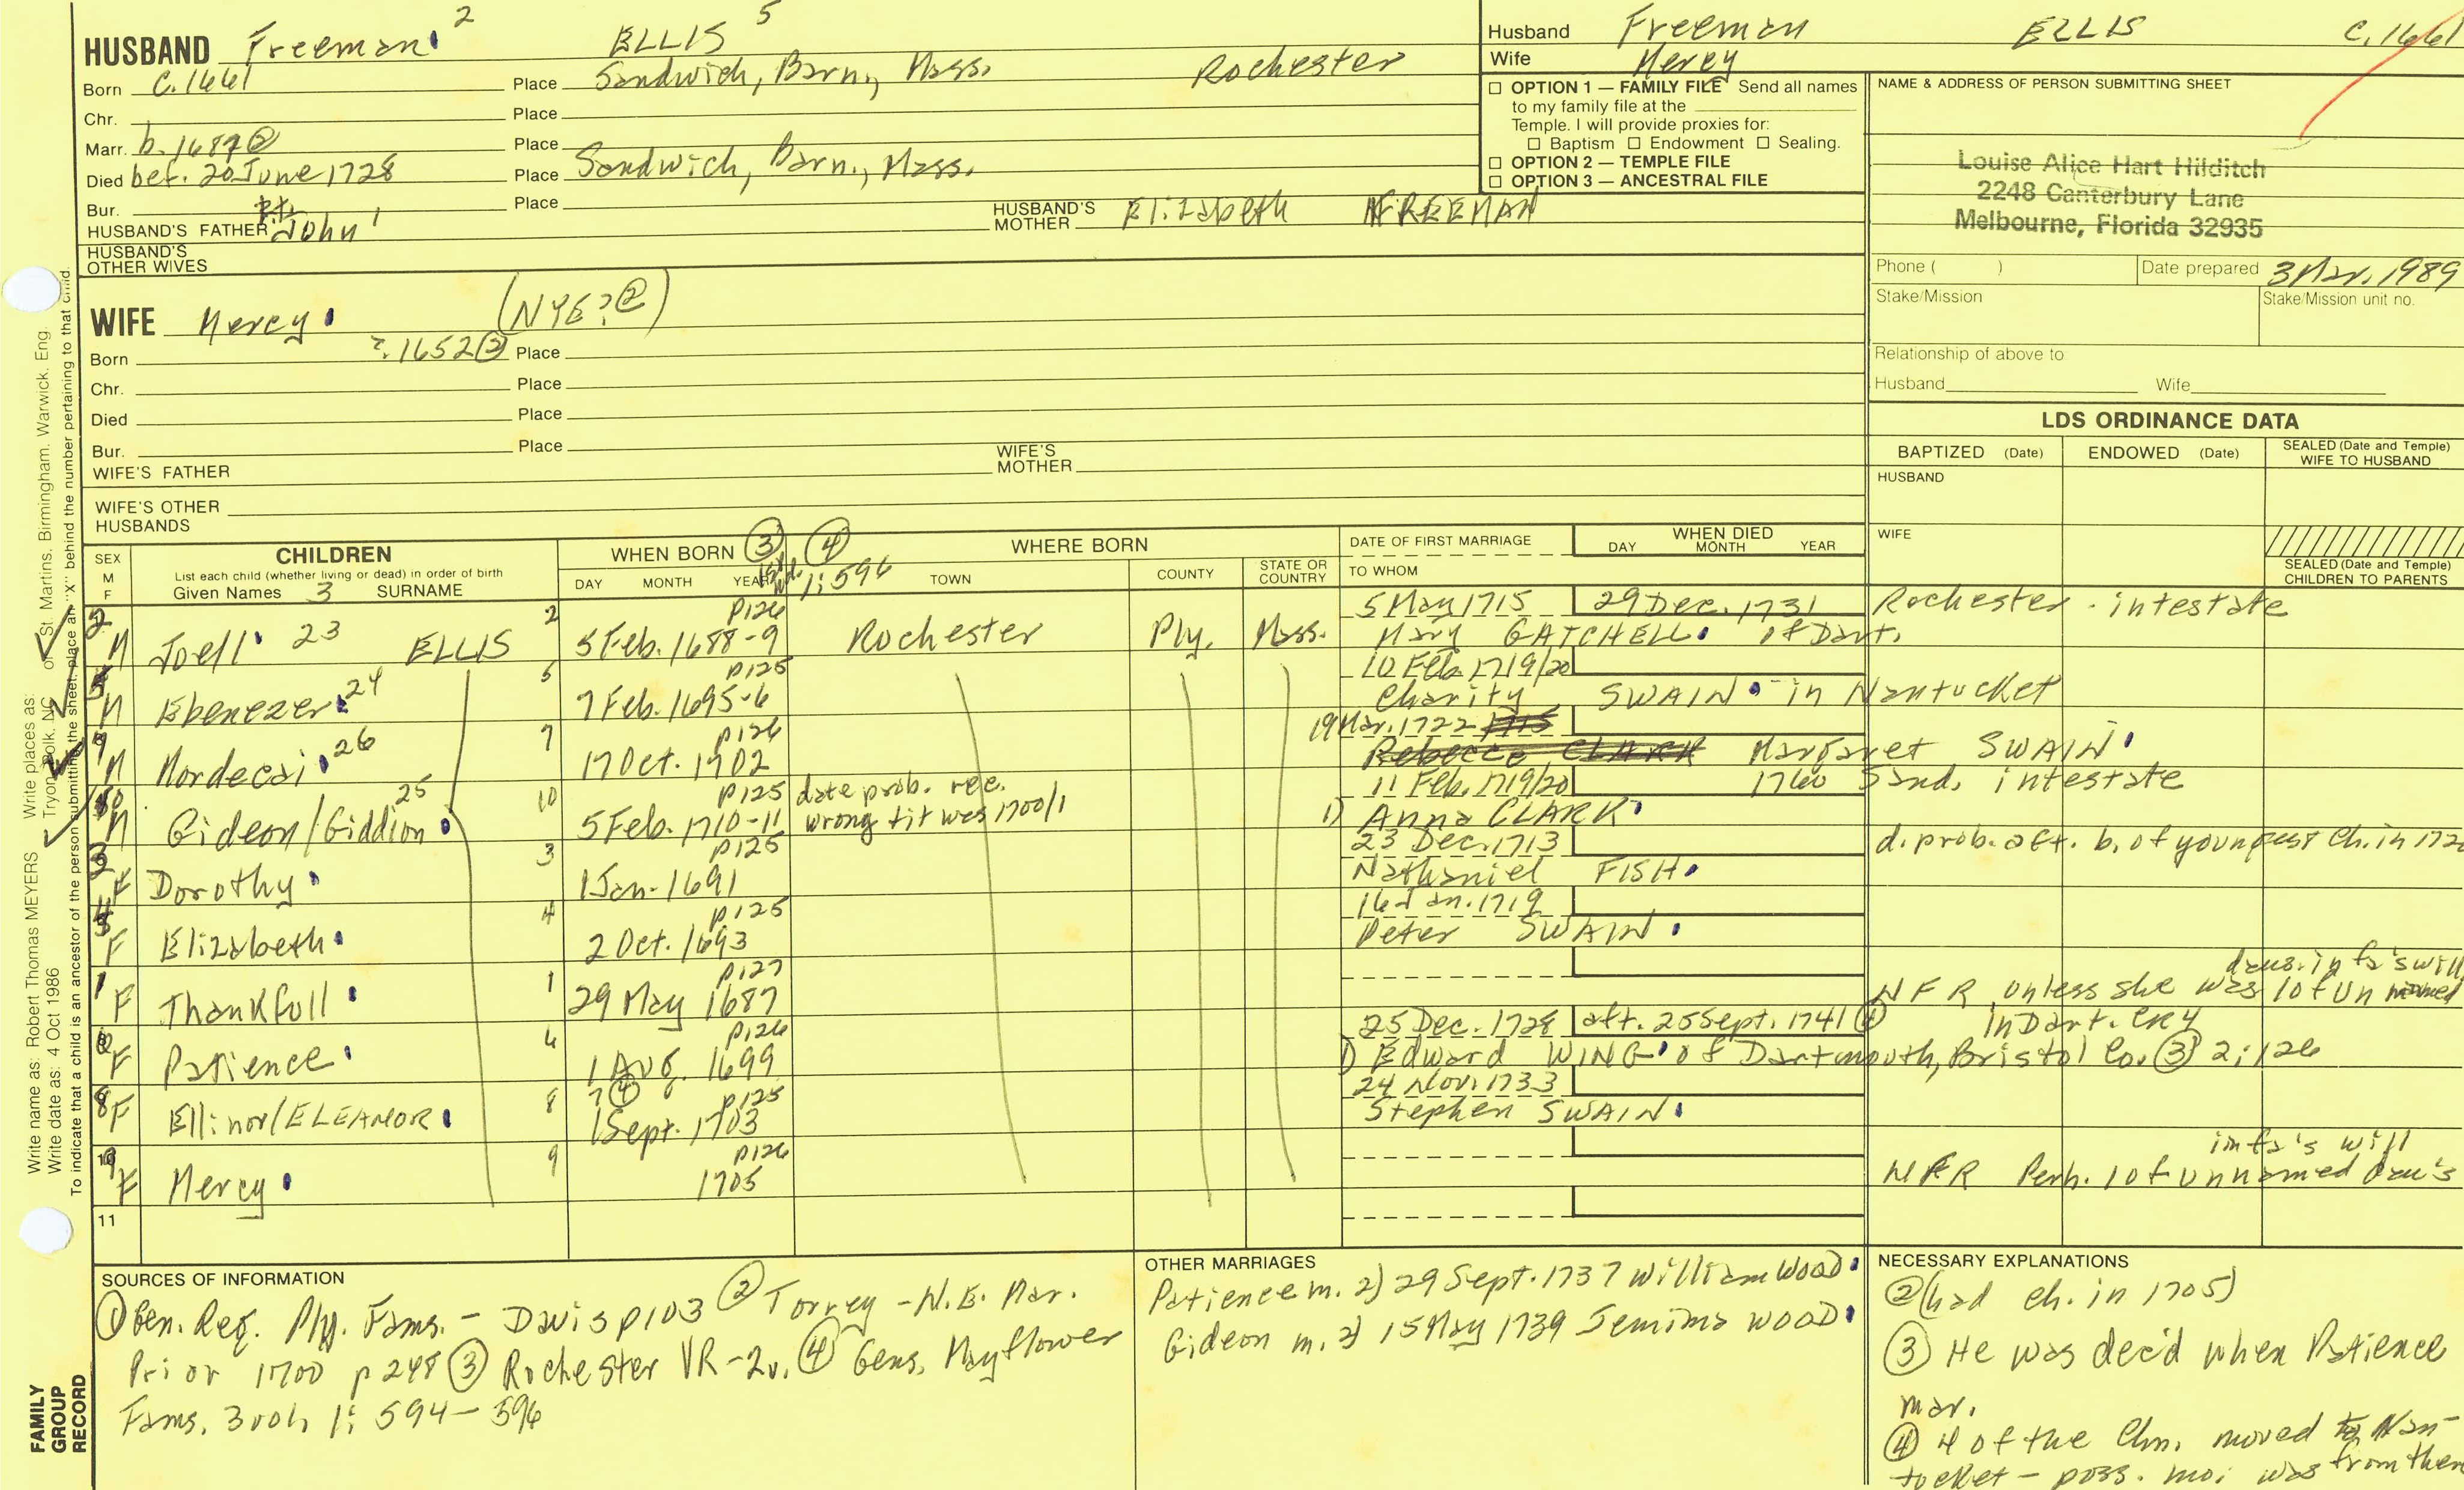 HUSBAND Freeman 2 ELLIS 5
Born C.1661 Place Sandwich, Barn., Mass. Rochester
Chr. Place
Marr. b. 1687② Place
Died bef. 20 June 1728 Place Sandwich, Barn., Mass.
Bur. Place
HUSBAND'S FATHER John 1 HUSBAND'S MOTHER Elizabeth FREEMAN
HUSBAND'S OTHER WIVES
WIFE Mercy (NYE?②)
Born ?.1652② Place
Chr. Place
Died Place
Bur. Place
WIFE'S FATHER WIFE'S MOTHER
WIFE'S OTHER HUSBANDS
Husband Freeman ELLIS C.1661
Wife Mercy
☐ OPTION 1 — FAMILY FILE Send all names
to my family file at the
Temple. I will provide proxies for:
☐ Baptism ☐ Endowment ☐ Sealing.
☐ OPTION 2 — TEMPLE FILE
☐ OPTION 3 — ANCESTRAL FILE
NAME & ADDRESS OF PERSON SUBMITTING SHEET
Louise Alice Hart Hilditch
2248 Canterbury Lane
Melbourne, Florida 32935
Phone ( ) Date prepared 3 Mar. 1989
Stake/Mission Stake/Mission unit no.
Relationship of above to
Husband Wife
LDS ORDINANCE DATA
BAPTIZED (Date) ENDOWED (Date) SEALED (Date and Temple) WIFE TO HUSBAND
HUSBAND
WIFE
SEALED (Date and Temple) CHILDREN TO PARENTS
SEX M F
CHILDREN
List each child (whether living or dead) in order of birth
Given Names 3 SURNAME
WHEN BORN ③ ④ 1:596
DAY MONTH YEAR
WHERE BORN
TOWN COUNTY STATE OR COUNTRY
DATE OF FIRST MARRIAGE
TO WHOM
WHEN DIED
DAY MONTH YEAR
2 p126 5 May 1715 29 Dec. 1731 Rochester - intestate
M Joell 23 ELLIS 5 Feb. 1688-9 Rochester Ply. Mass. Mary GATCHELL of Dart.
5 p125 10 Feb. 1719/20
M Ebenezer 24 7 Feb. 1695-6 Charity SWAIN in Nantucket
7 p126 19 Mar. 1722 1715
M Mordecai 26 17 Oct. 1702 Rebecca CLARK Margaret SWAIN
10 p125 date prob. rec. 11 Feb. 1719/20 1760 Sand. intestate
M Gideon/Giddion 25 5 Feb. 1710-11 wrong & it was 1700/1 1) Anna CLARK
3 p125 23 Dec. 1713 d. prob. aft. b. of youngest ch. in
F Dorothy 1 Jan. 1691 Nathaniel FISH
4 p125 16 Jan. 1719
F Elizabeth 2 Oct. 1693 Peter SWAIN
1 p127 daus. in fa's will
F Thankfull 29 May 1687 NFR unless she was 1 of un named
6 p126 25 Dec. 1728 aft. 25 Sept. 1741④ in Dart.
F Patience 1 Aug. 1699 1) Edward WING of Dartmouth, Bristol Co. ③ 2:126
8 ?④ p125 24 Nov. 1733
F Ellinor/ELEANOR 1 Sept. 1703 Stephen SWAIN
9 p126 in fa's will
F Mercy 1705 NFR Perh. 1 of unnamed dau's
11
SOURCES OF INFORMATION
① Gen. Reg. Ply. Fams. - Davis p103 ② Torrey - N.E. Mar.
Prior 1700 p 248 ③ Rochester VR-2v. ④ Gens. Mayflower
Fams. 3 vol, 1: 594-596
OTHER MARRIAGES
Patience m. 2) 29 Sept. 1737 William WOOD
Gideon m. 2) 15 May 1739 Jemima WOOD
NECESSARY EXPLANATIONS
② (had ch. in 1705)
③ He was dec'd when Patience
mar.
④ 4 of the Chn. moved to Nan-
tucket - poss. mo. was from there
Write name as: Robert Thomas MEYERS Write places as: Tryon, Polk, NC or St. Martins, Birmingham, Warwick, Eng.
Write date as: 4 Oct 1986
To indicate that a child is an ancestor of the person submitting the sheet, place an "X" behind the number pertaining to that child.
FAMILY
GROUP
RECORD